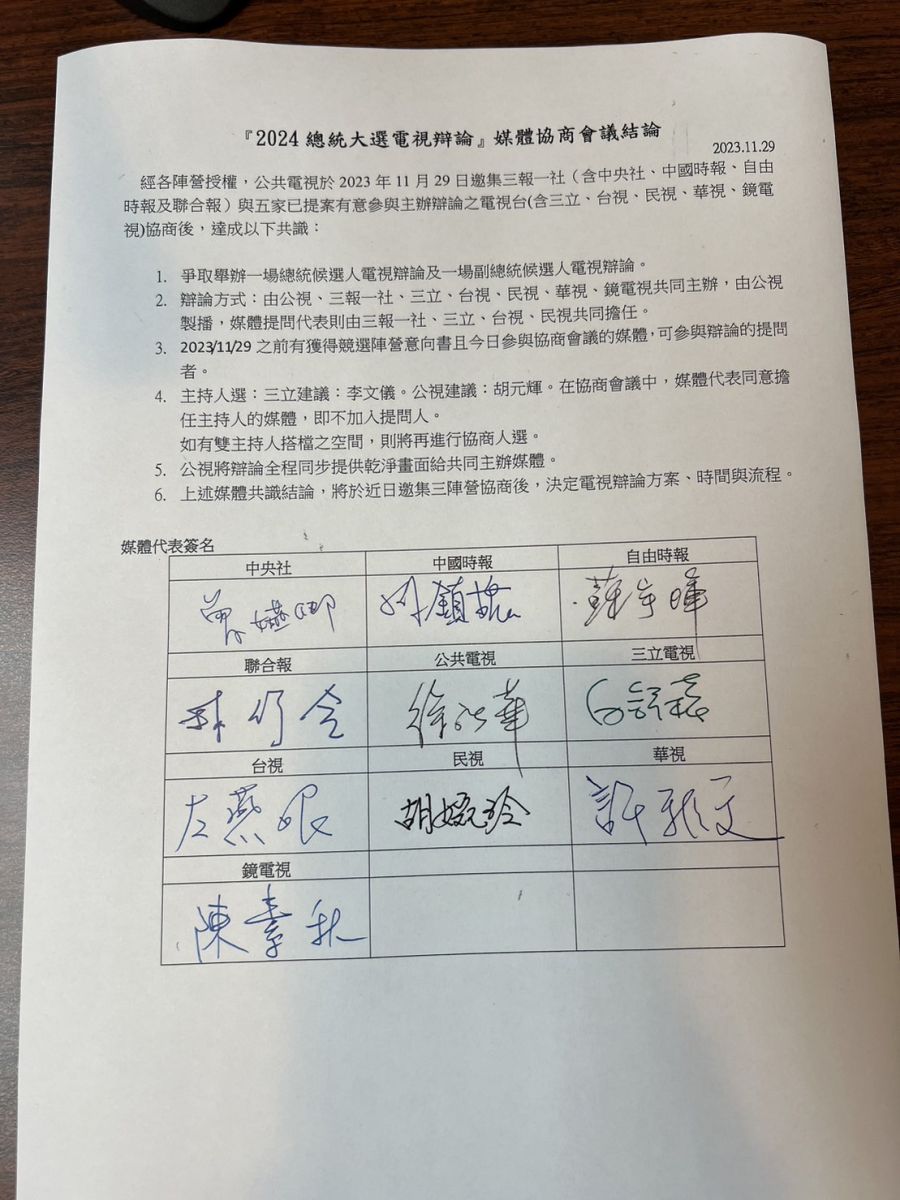 『2024 總統大選電視辯論』媒體協商會議結論
2023.11.29
經各陣營授權，公共電視於 2023 年 11 月 29 日邀集三報一社（含中央社、中國時報、自由
時報及聯合報）與五家已提案有意參與主辦辯論之電視台(含三立、台視、民視、華視、鏡電
視)協商後，達成以下共識：
1. 爭取舉辦一場總統候選人電視辯論及一場副總統候選人電視辯論。
2. 辯論方式：由公視、三報一社、三立、台視、民視、華視、鏡電視共同主辦，由公視
製播，媒體提問代表則由三報一社、三立、台視、民視共同擔任。
3. 2023/11/29 之前有獲得競選陣營意向書且今日參與協商會議的媒體，可參與辯論的提問
者。
4. 主持人選：三立建議：李文儀。公視建議：胡元輝。在協商會議中，媒體代表同意擔
任主持人的媒體，即不加入提問人。
如有雙主持人搭檔之空間，則將再進行協商人選。
5. 公視將辯論全程同步提供乾淨畫面給共同主辦媒體。
6. 上述媒體共識結論，將於近日邀集三陣營協商後，決定電視辯論方案、時間與流程。
媒體代表簽名
中央社 中國時報 自由時報
曾嬿卿
聯合報 公共電視 三立電視
台視 民視 華視
左燕 胡婉玲 許雅文
鏡電視
陳素秋